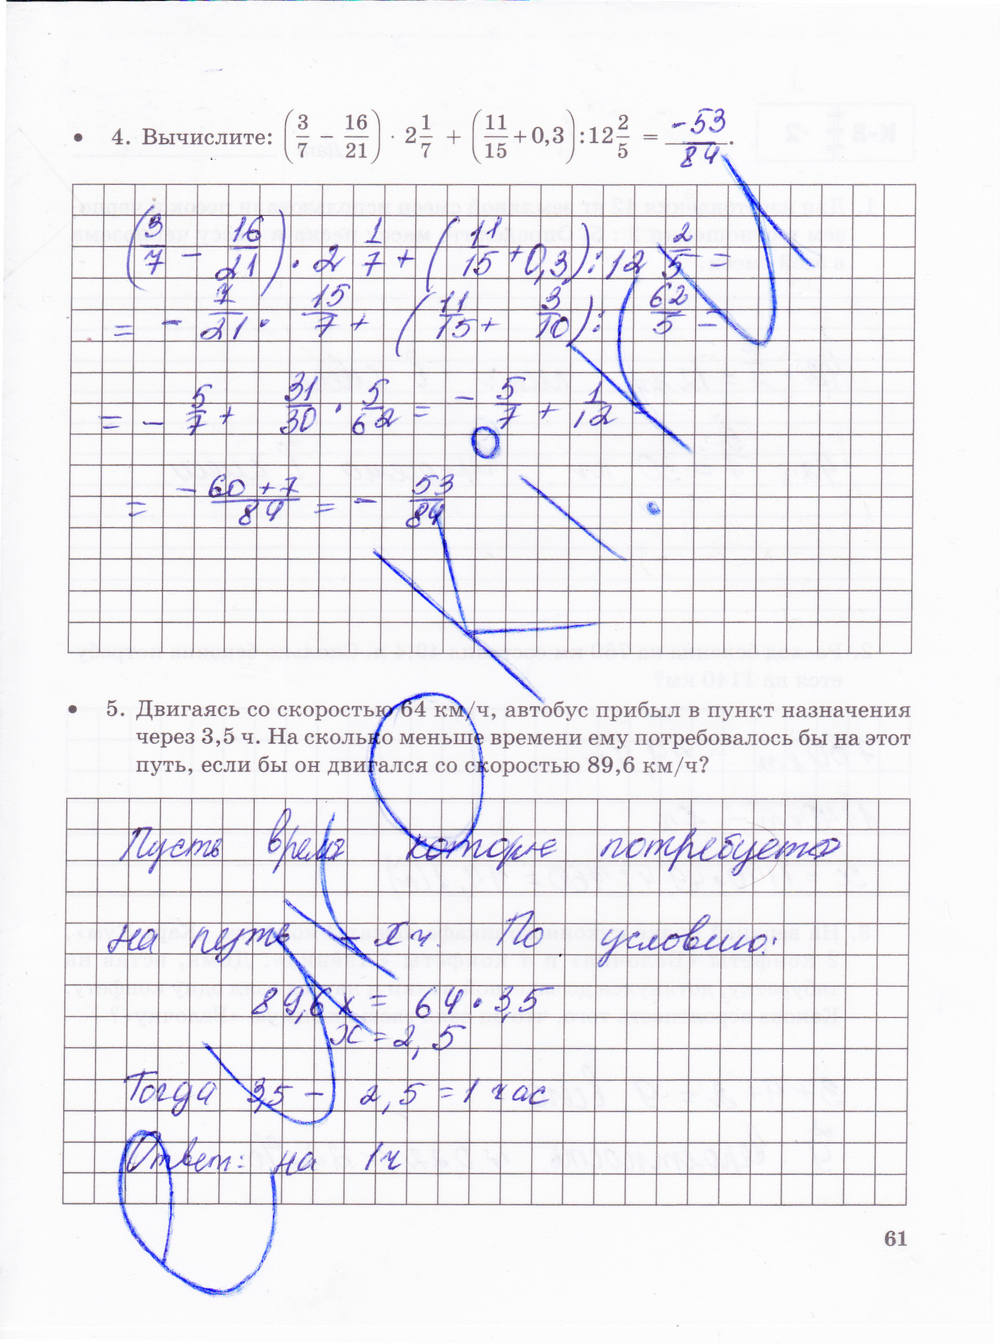 4. Вычислите: (3/7 − 16/21) · 2 1/7 + (11/15 + 0,3) : 12 2/5 = -53/84.
(3/7 − 16/21) · 2 1/7 + (11/15 + 0,3) : 12 2/5 =
= − 7/21 · 15/7 + (11/15 + 3/10) : 62/5 =
= − 5/7 + 31/30 · 5/62 = − 5/7 + 1/12
= −60+7/84 = − 53/84
5. Двигаясь со скоростью 64 км/ч, автобус прибыл в пункт назначения
через 3,5 ч. На сколько меньше времени ему потребовалось бы на этот
путь, если бы он двигался со скоростью 89,6 км/ч?
Пусть время которое потребуется
на путь − x ч. По условию:
89,6 x = 64 · 3,5
x = 2,5
Тогда 3,5 − 2,5 = 1 час
Ответ: на 1ч
61